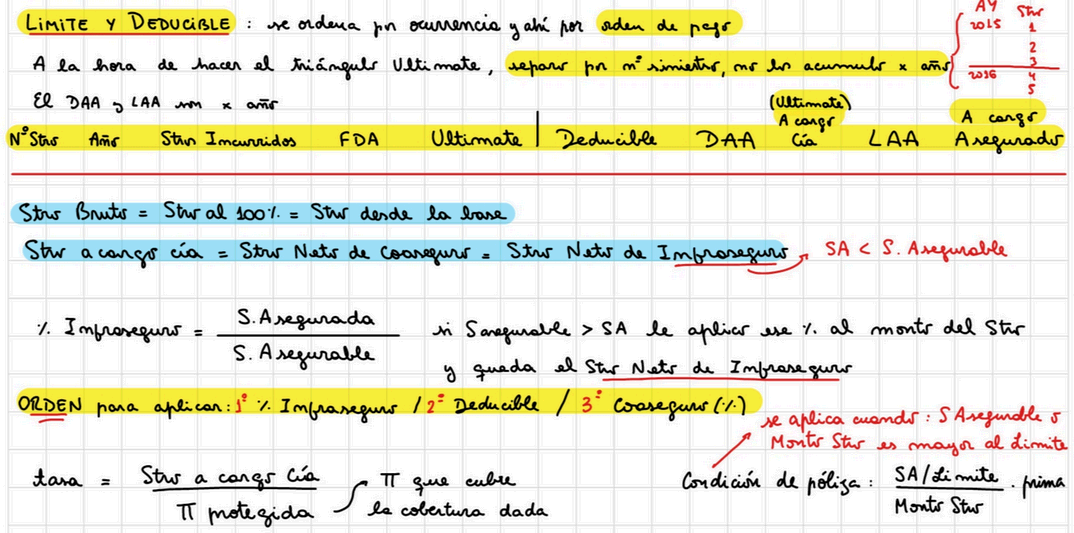 LIMITE Y DEDUCIBLE : se ordena por ocurrencia y ahí por orden de pago
AY Stro
2015 1
2
3
2016 4
5
A la hora de hacer el triángulo Ultimate, separo por nº siniestro, no lo acumulo x año
El DAA y LAA son x año
Nº Stro Año Stro Incurridos FDA Ultimate | Deducible DAA (Ultimate) A cargo Cía LAA A cargo Asegurado
Stro Bruto = Stro al 100% = Stro desde la base
Stro a cargo cía = Stro Neto de Coaseguro = Stro Neto de Infraseguro → SA < S. Asegurable
% Infraseguro = S. Asegurada / S. Asegurable si S asegurable > SA le aplico ese % al monto del Stro
y queda el Stro Neto de Infraseguro
ORDEN para aplicar: 1º % Infraseguro / 2º Deducible / 3º Coaseguro (%)
se aplica cuando : S Asegurable o
Monto Stro es mayor al Limite
tasa = Stro a cargo Cía / Π protegida Π que cubre
la cobertura dada
Condición de póliza : SA/Limite / Monto Stro . prima